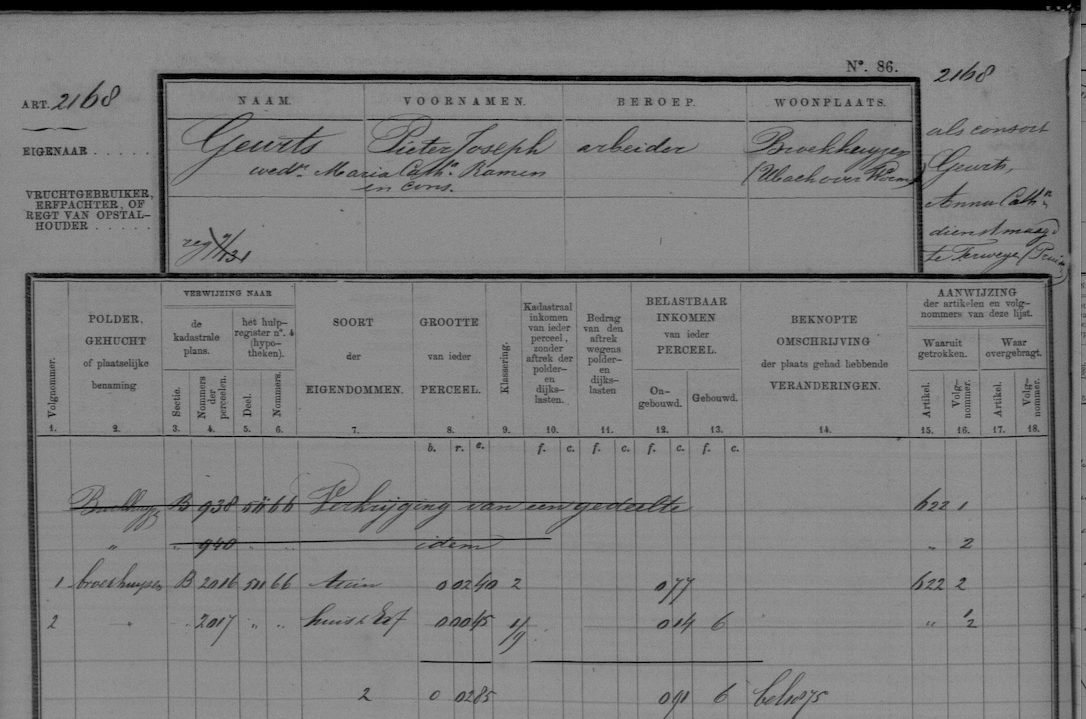 Nº. 86.
2168
ART. 2168
EIGENAAR . . . . .
VRUCHTGEBRUIKER,
ERFPACHTER, OF
REGT VAN OPSTAL-
HOUDER . . . . .
NAAM. VOORNAMEN. BEROEP. WOONPLAATS.
Geurts Pieter Joseph arbeider Broekhuyzen
wedr. Maria Cathn. Ramen
en cons.
als consort
Geurts,
Anna Cathn.
dienstmaagd
te
VERWIJZING NAAR
POLDER,
GEHUCHT
of plaatselijke
benaming
de
kadastrale
plans.
het hulp-
register nº. 4
(hypo-
theken).
SOORT
DER
EIGENDOMMEN.
GROOTTE
van ieder
PERCEEL.
Klasseering.
Kadastraal
inkomen
van ieder
perceel,
zonder
aftrek der
polder-
en
dijks-
lasten.
Bedrag
van den
aftrek
wegens
polder-
en
dijks-
lasten
BELASTBAAR
INKOMEN
van ieder
PERCEEL.
On-
gebouwd.
Gebouwd.
BEKNOPTE
OMSCHRIJVING
der plaats gehad hebbende
VERANDERINGEN.
AANWIJZING
der artikelen en volg-
nommers van deze lijst.
Waaruit
getrokken.
Waar
overgebragt.
Volgnommer.
Sectie.
Nommers
der
perceelen.
Deel.
Nommers.
Artikel.
Volg-
nommer.
Artikel.
Volg-
nommer.
1. 2. 3. 4. 5. 6. 7. 8. 9. 10. 11. 12. 13. 14. 15. 16. 17. 18.
b. r. e. f. c. f. c. f. c. f. c.
B 938 66 Verkrijging van een gedeelte 622 1
" " 940 " " idem " 2
1 broekhuyzen B 2016 511 66 tuin 0 02 40 2 0 77 622 2
2 " " 2017 " " huis & Erf 0 00 45 1/9 0 14 6 " 1/2
2 0 02 85 0 91 6 1875